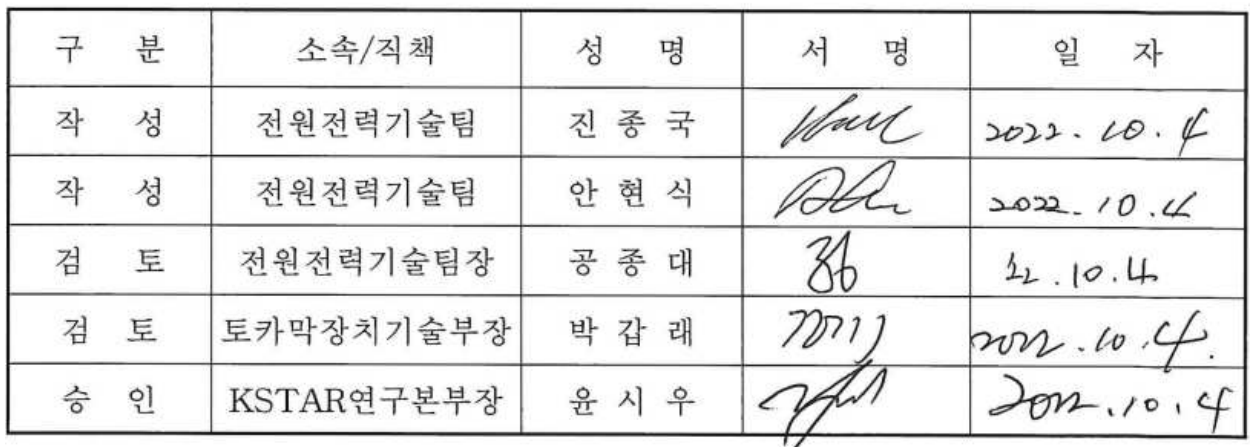 구 분 소속/직책 성 명 서 명 일 자
작 성 전원전력기술팀 진 종 국 2022. 10. 4
작 성 전원전력기술팀 안 현 식 2022. 10. 4
검 토 전원전력기술팀장 공 종 대 22. 10. 4
검 토 토카막장치기술부장 박 갑 래 2022. 10. 4.
승 인 KSTAR연구본부장 윤 시 우 2022. 10. 4